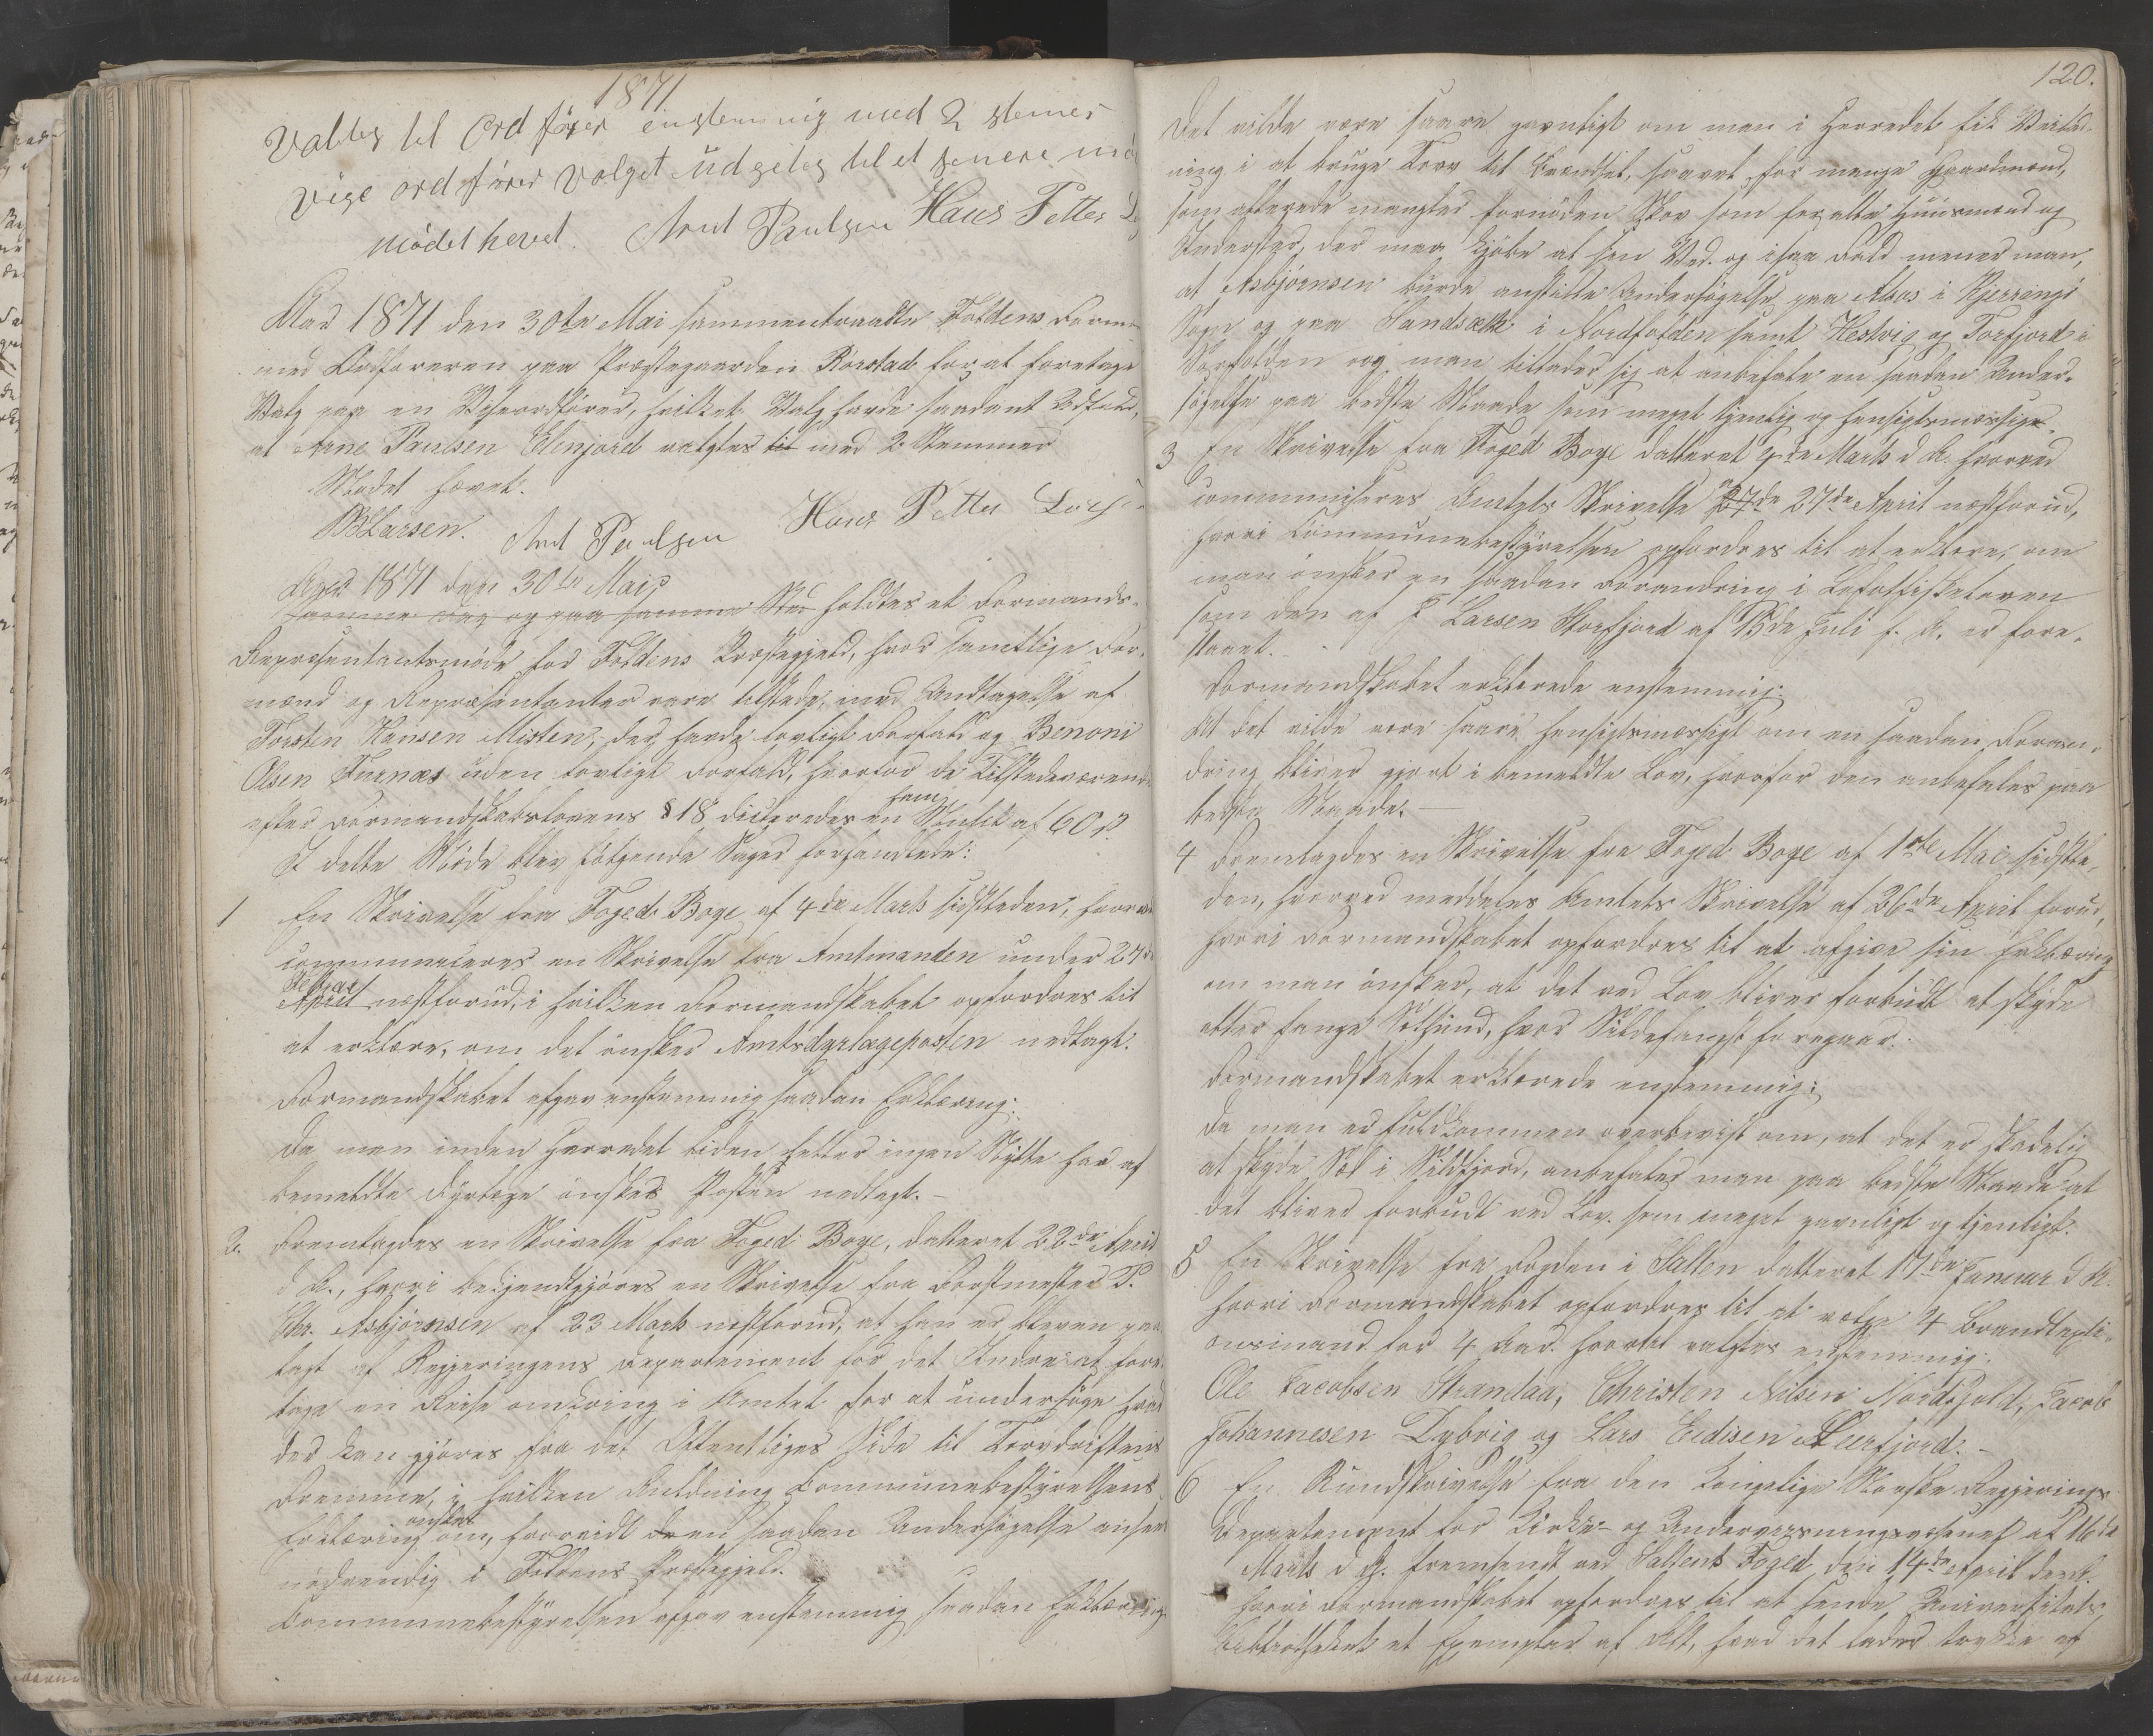 1871
Valtes til Ordförer enstemmig med 2 stemer
vise ordförer valget udsetes til et senere mø
mödet hevet. Arnt Paulsen Hans Petter
Aar 1871 den 30te Mai sammentraadte Foldens Form
med Ordføreren paa Præstegaarden Rörstad for at foretage
Valg paa en Viseordförer, hvilket Valg havde saadant Udfald,
at Arne Paulsen Elvnjord valgtes til med 2 Stemmer
Mødet hævet.
Larsen. Arnt Paulsen Hans Petter
Aar 1871 den 30te Mai
Samme Dag og paa samme Sted holdtes et Formands-
Repræsentantsmöde for Foldens Præstegjeld, hvor samtlige For-
mænd og Repræsentanter vare tilstede, med Undtagelse af
Torsten Hansen Misten, der havde lovligt Forfald og Benoni
Olsen Furnæs uden lovligt Forfald, hvorfor de Tilstedeværende
efter Formandskabslovens § 18 dicterede ham en Mulct af 60 β.
I dette Möde blev følgende Sager forhandlede:
1 En Skrivelse fra Foged Boye af 4de Marts sidstleden, hvorved
communiceres en Skrivelse fra Amtmanden under 27de
Februar
April næstforud, i hvilken Formandskabet opfordres til
at erklære, om det ønsker Amtsdyrlægeposten nedlagt.
Formandskabet afgav enstemmig saadan Erklæring:
Da man inden Herredet liden heller ingen Nytte har af
bemeldte Dyrlæge ønskes Posten nedlagt. –
2. Fremlagdes en Skrivelse fra Foged Boye, datteret 22de April
d. A., hvori bekjendtgjøres en Skrivelse fra Forstmester P.
Chr. Asbjörnsen af 23 Marts næstforud, at han er bleven paa-
lagt af Regjeringens Departement for det Indre at fore-
tage en Reise omkring i Amtet for at undersöge hvad
der kan gjöres fra det Offentliges Side til Torvdriftens
Fremme, i hvilken Anledning Communebestyrelsens
Erklæring önskes om, hvorvidt en saadan Undersøgelse ansees
nødvendig i Foldens Præstegjeld.
Communebestyrelsen afgav enstemmig saadan Erklæring
120.
Det vilde være saare gavnligt om man i Herredet fik Veiled-
ning i at bruge Torv til Brændsel, saavel for mange Gaardmænd,
som allerede mangler fornöden Skov som for alle Huusmænd og
Inderster, der maa kjöbe al sin Ved. og isaa Fald mener man,
at Asbjörnsen burde anstille Undersögelse paa Alsos i Kjerringö
Sogn og paa Sandsætle i Nordfolden samt Hestvig og Torfjord i
Sørfolden og man tillader sig at anbefale en saadan Under-
søgelse paa bedste Maade som meget tjenlig og hensigtsmæssige.
3 En Skrivelse fra Foged Boye datteret 9de Marts d. A. hvorved
communiseres Amtets Skrivelse af 27de April næstforud,
hvori Communebestyrelsen opfordres til at erklære, om
man önsker en saadan Forandring i Lofotfiskeloven
som den af J. Larsen Storfjord af 15de Juli f. A. er fore-
slaaet.
Formandskabet erklærede enstemmig:
At det vilde være saare hensigtsmæssigt om en saadan Foran-
dring bliver gjort i bemeldte Lov, hvorfor den anbefales paa
bedste Maade. –
4 Fremlagdes en Skrivelse fra Foged Boye af 1ste Mai sidstle-
den, hvorved meddeles Amtets Skrivelse af 26de April forud,
hvori Formandskabet opfordres til at afgive sin Erklæring
om man önsker, at det ved Lov bliver forbudt at skyde
eller fange Sölhund, hvor Sildefangst foregaar.
Formandskabet erklærede enstemmig:
Da man er fuldkommen overbevist om, at det er skadelig
at skyde Sel i Sildfjord, anbefaler man paa bedste Maade at
det bliver forbudt ved Lov. som meget gavnligt og tjenligt.
5 En Skrivelse fra Fogden i Salten datteret 17de Januar d. A.
hvori Formandskabet opfordres til at vælge 4 Brandtaxti-
onsmænd for 4 Aar. hvortil valgtes enstemmig:
Ole Jacobsen Strandaa, Christen Nilsen Nordfjold, Jacob
Johannesen Dybvig og Lars Eedisen Leerfjord. –
6 En Rundskrivelse fra den kongelige Norske Regjerings
Departement for Kirke- og Underviisningsvæsenet af 16de
Marts d. A. fremsendt ved Saltens Foged den 14de April
hvori Formandskabet opfordres til at sende Universitets
bibliotheket et Exemplar af Alt, hvad det lader trykke af